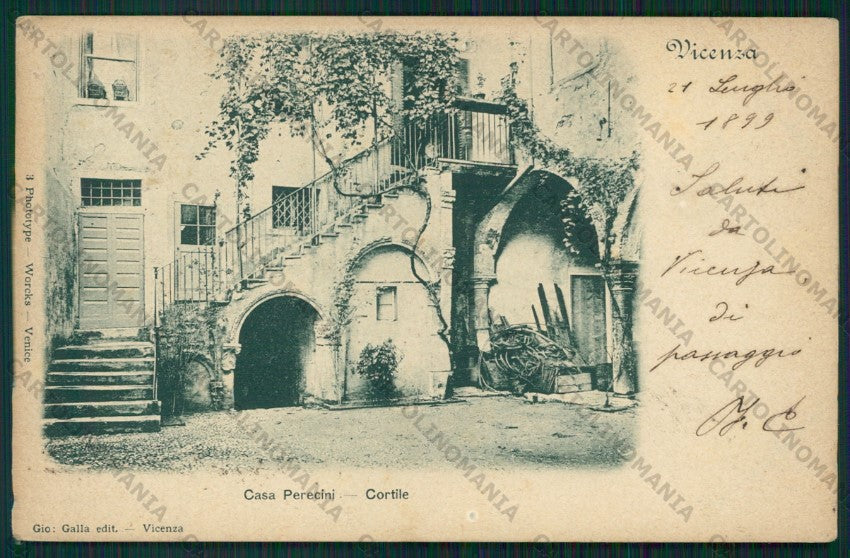 Vicenza
21 Luglio
1899
Saluti
da
Vicenza
di
passaggio
3 Phototype — Worcks — Venice
Casa Perecini — Cortile
Gio: Galla edit. — Vicenza
CARTOLINOMANIA